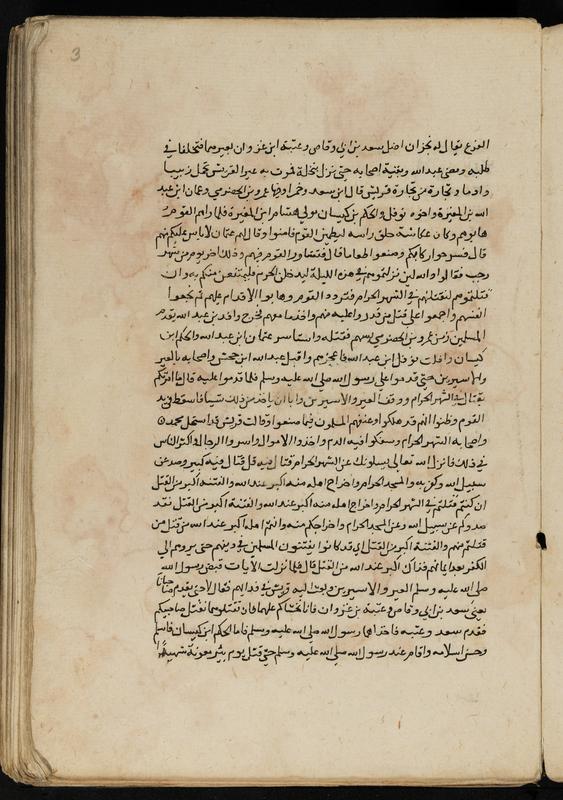 3
الفرع يقال له نجران اضل سعد بن ابي وقاص وعتبة ابن غزوان لهما بعيرا فتخلفا في
طلبه ومضى عبد الله وبقية اصحابه حتى نزل بنخلة فمرت به عير لقريش تحمل زبيبا
وادما وتجارة من تجارة قريش قال ابن سعد وخمرا وفيها عمرو بن الحضرمي وعثمان ابن عبد
الله بن المغيرة واخوه نوفل والحكم بن كيسان مولى هشام ابن المغيرة فلما راهم القوم
هابوهم وكان عكاشة حلق راسه ليطمئن القوم فامنوا وقال لهم عمار لا باس عليكم منهم
قال فسرحوا ركابهم وصنعوا الطعاما قال فتشاور القوم فيهم وذلك اخر يوم من شهر
رجب فقالوا والله لئن تركتموهم في هذه الليلة ليدخلن الحرم فليمتنعن منكم به وان
قتلتموهم لنقتلنهم في الشهر الحرام فتردد القوم وهابوا الاقدام عليهم ثم شجعوا
انفسهم واجمعوا على قتل من قدروا عليه منهم واخذ ما معهم فخرج واقد بن عبد الله يقدم
المسلمين فرمى عمرو بن الحضرمي بسهم فقتله واستاسر عثمان ابن عبد الله والحكم ابن
كيسان وافلت نوفل ابن عبد الله فاعجزهم واقبل عبد الله ابن جحش واصحابه بالعير
والاسيرين حتى قدموا على رسول الله صلى الله عليه وسلم فلما قدموا عليه قال ما امرتكم
بقتال في الشهر الحرام ووقف العير والاسيرين وابا ان ياخذ من ذلك شيا فاسقط في يد
القوم وظنوا انهم قد هلكوا وعنفهم المسلمون فيما صنعوا وقالت قريش قد استحل محمد
واصحابه الشهر الحرام وسفكوا فيه الدم واخذوا الاموال واسروا الرجال واكثر الناس
في ذلك فانزل الله تعالى يسئلونك عن الشهر الحرام قتال فيه قل قتال فيه كبير وصد عن
سبيل الله وكفر به والمسجد الحرام واخراج اهله منه اكبر عند الله والفتنة اكبر من القتل
ان كنتم قتلتم في الشهر الحرام واخراج اهله منه اكبر عند الله والفتنة اكبر من القتل فقد
صدوكم عن سبيل الله وعن المسجد الحرام واخراجكم منه وانتم اهله اكبر عند الله من قتل من
قتلتم منهم والفتنة اكبر من القتل اي قد كانوا يفتنون المسلمين في دينهم حتى يردوهم الى
الكفر بعد ايمانهم فذاك اكبر عند الله من القتل قال فلما نزلت الايات قبض رسول الله
صلى الله عليه وسلم العير والاسيرين وبعث اليه قريش في فدايهم فقال لا حتى يقدم صاحبانا
يعني سعد بن ابي وقاص وعتبة بن غزوان فانا نخشاكم عليهما فان تقتلوهما نقتل صاحبيكم
فقدم سعد وعتبه فافداهما رسول الله صلى الله عليه وسلم فاما الحكم ابن كيسان فاسلم
وحسن اسلامه واقام عند رسول الله صلى الله عليه وسلم حتى قتل يوم بئر معونة شهيدا